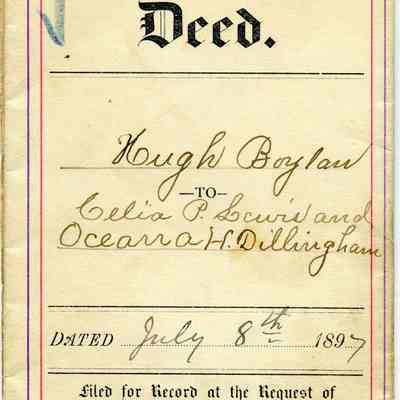 Deed.
Hugh Boylan
—TO—
Celia P. Lewis and
Oceanna H. Dillingham
DATED July 8th 1897
Filed for Record at the Request of